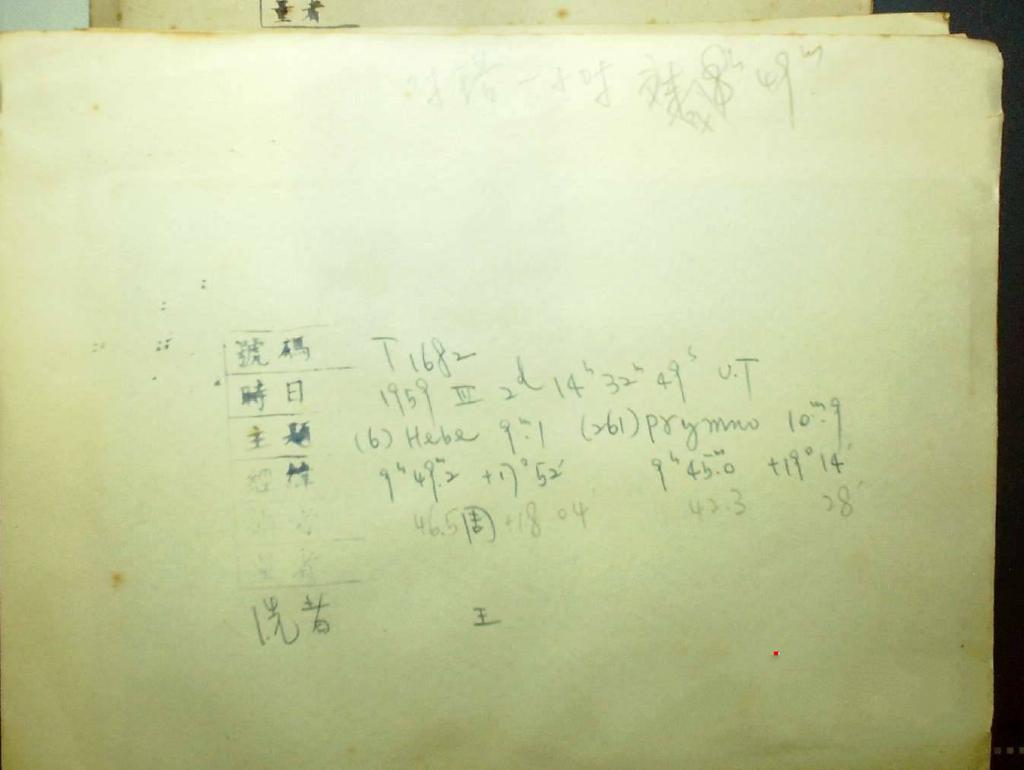 量者
時錯一小時 8ʰ 49ᵐ
號碼 T 1682
時日 1959 III 2ᵈ 14ʰ 32ᵐ 49ˢ U.T
主題 (6) Hebe 9ᵐ.1 (261) Prymno 10ᵐ.9
9ʰ 49ᵐ.2 +17° 52′ 9ʰ 45ᵐ.0 +19° 14′
46.5 周 +18 04′ 42.3 28′
量者
洗者 王